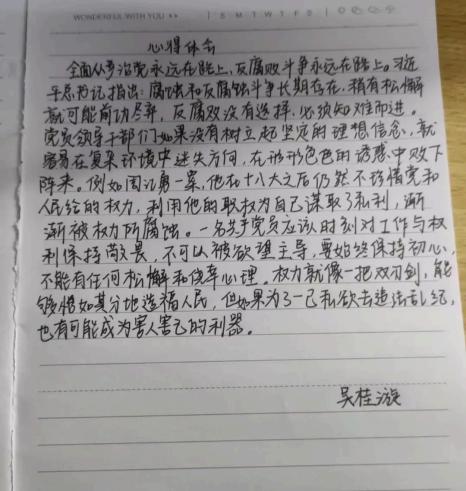 WONDERFUL WITH YOU
S M T W T F S
心得体会
全面从严治党永远在路上,反腐败斗争永远在路上。习近
平总书记指出:腐蚀和反腐蚀斗争长期存在,稍有松懈
就可能前功尽弃,反腐败没有选择,必须知难而进。
党员领导干部们如果没有树立起坚定的理想信念,就
容易在复杂环境中迷失方向,在形形色色的诱惑中败下
阵来。例如周 一案,他在十八大之后仍然不珍惜党和
人民给的权力,利用他的职权为自己谋取了私利,渐
渐被权力所腐蚀。一名共产党员应该时刻对工作与权
利保持敬畏,不可以被欲望主导,要始终保持初心,
不能有任何松懈和侥幸心理。权力就像一把双刃剑,能
够恰如其分地造福人民,但如果为了一己私欲去违法乱纪,
也有可能成为害人害己的利器。
吴桂漩